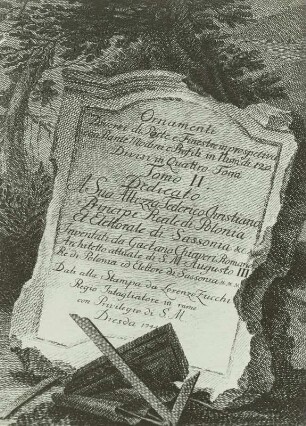 Ornamenti
Diversi di Porte e Finestre in prospettiva
con Piante Modini e Profili in Num: di 120
Divisi in Quattro Tomi
Tomo II
Dedicato
A Sua Altezza Federico Christiano
Principe Real di Polonia
Et Elettorale di Sassonia &c.
Inventati da Gaetano Chiaveri Romano
Architetto attuale di S. M. Augusto III
Re di Polonia ed Elettore di Sassonia
Dati alle Stampa da Lorenzo Zucchi
Regio Intagliatore in rame
con Privilegio di S. M.
Dresda